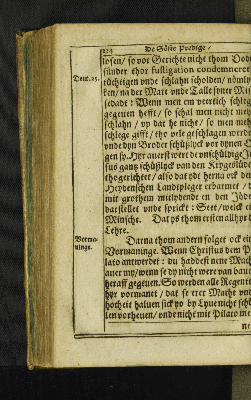 224 De Söste Predige /
losen / so vor Gerichte nicht thom Dode
sünder thor fustigation condemneret
Deut. 25. tüchtigen unde schlahn scholden / nömlyk
ken / na der Mate unde Talle syner Mis
sedadt : Wenn men em veertich schlege
gegeuen hefft / so schal men nicht mehr
schlahn / up dat he nicht / so men mehr
schlege gifft / tho vele geschlagen werde
unde dyn Broder schüßlyck vor dynen O
gen sy. Hyr auerst wert de unschüldige Je
sus gantz schüßlyck van den Krygeslüden
thogerichtet / also dat ydt herna ock den
Heydenschen Landtpleger erbarmet / de
mit grothem medlydende en den Jöden
darstellet unde sprickt : Seet / welck ein
Minsche. Dat ys thom ersten all hyr de
Lehre.
Vorma-
ninge. Darna thon andern folget ock eine
Vormaninge. Wenn Christus dem Pi
lato antwerdet : du haddest nene Macht
auer my / wenn se dy nicht were van bauen
heraff gegeuen. So werden alle Regenten
hyr vormanet / dat se erer Macht unde
hocheit haluen sick yo by Lyue nicht schö
len vorheuen / unde nicht mit Pilato me